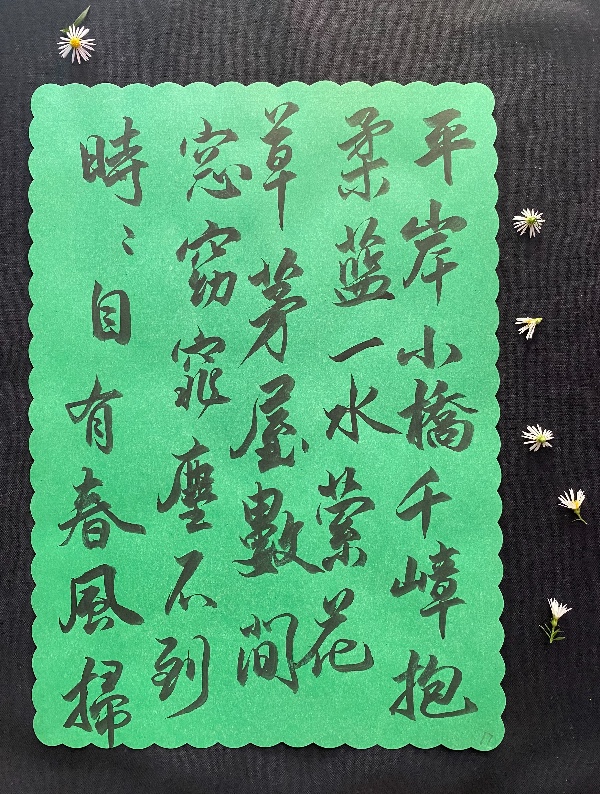 平岸小橋千嶂抱
柔藍一水萦花
草茅屋數間
窓窈窕塵不到
時〻自有春風掃
17